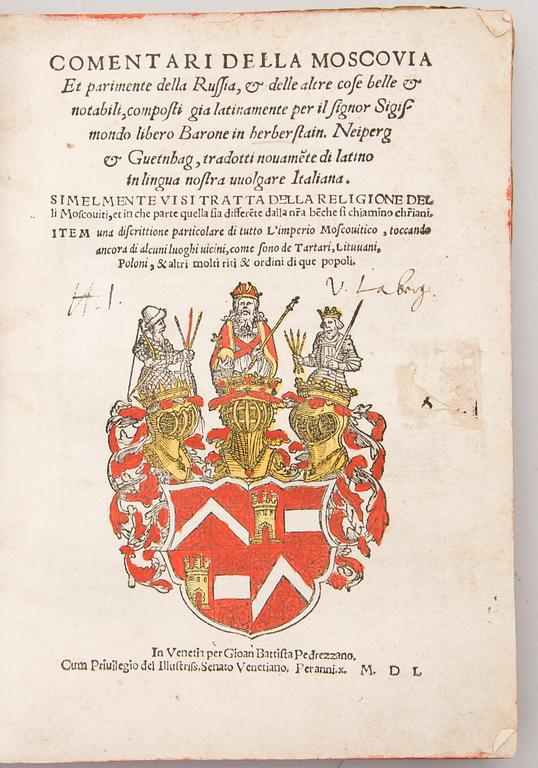 COMENTARI DELLA MOSCOVIA
Et parimente della Ruſſia, & delle altre coſe belle &
notabili, compoſti gia latinamente per il ſignor Sigiſ-
mondo libero Barone in herberſtain. Neiperg
& Guetnhag, tradotti nouamẽte di latino
in lingua noſtra uuolgare Italiana.
SIMELMENTE VI SI TRATTA DELLA RELIGIONE DEL
li Moſcouiti, et in che parte quella ſia differẽte dalla nr̃a bẽche ſi chiamino chr̃iani.
ITEM una diſcrittione particolare di tutto L'imperio Moſcouitico, toccando
ancora di alcuni luoghi uicini, come ſono de Tartari, Lituuani,
Poloni, & altri molti riti & ordini di que popoli.
H. 1.
V. La
In Venetia per Gioan Battiſta Pedrezzano.
Cum Priuilegio del Illuſtriſſ. Senato Venetiano, Per anni. x. M. D L